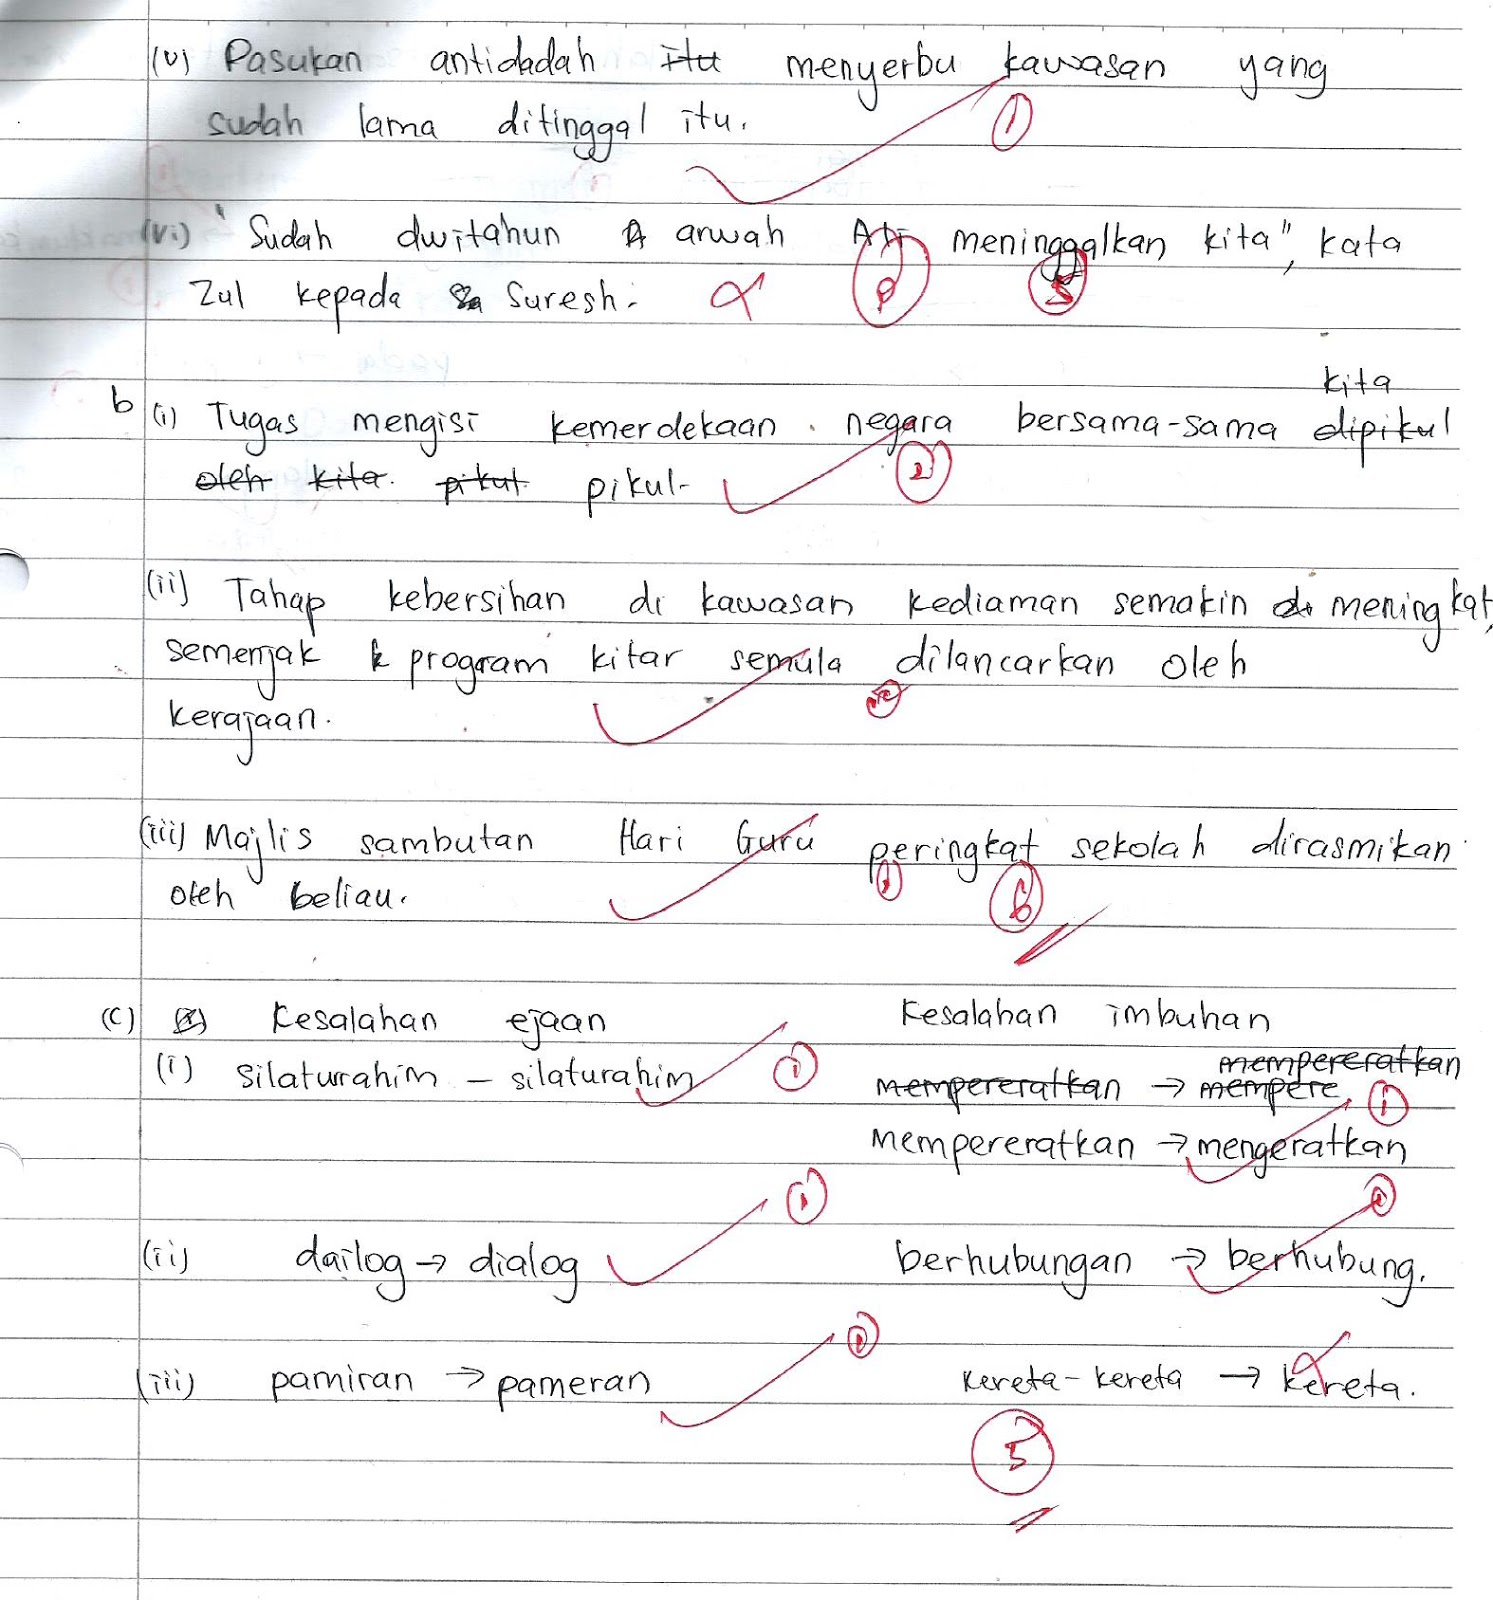 (v) Pasukan antidadah itu menyerbu kawasan yang
sudah lama ditinggal itu.
1
(vi) "Sudah dwitahun A arwah Ali meninggalkan kita", kata
Zul kepada Sa Suresh.
5
kita
b (i) Tugas mengisi kemerdekaan negara bersama-sama dipikul
oleh kita pikul pikul.
2
(ii) Tahap kebersihan di kawasan kediaman semakin di meningkat,
semenjak k program kitar semula dilancarkan oleh
kerajaan.
(iii) Majlis sambutan Hari Guru peringkat sekolah dirasmikan
oleh beliau.
6
(c) Kesalahan ejaan Kesalahan imbuhan
mempereratkan
(i) silaturrahim – silaturahim 1 mempereratkan → mempere 1
mempereratkan → mengeratkan
1
(ii) dailog → dialog berhubungan → berhubung.
(iii) pamiran → pameran kereta-kereta → kereta.
5